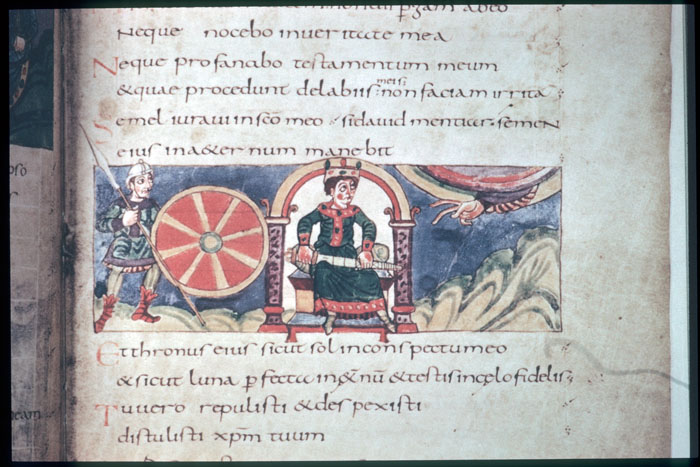 abeo
Neque nocebo inveritate mea
Neque profanabo testamentum meum
&quae procedunt delabiis meis non faciam irrita
Semel iuravi inscō meo · sidavid mentiar · semen
eius ina&ernum manebit
Et thronus eius sicut sol inconspectu meo
& sicut luna ꝑfecta in & testis incęlo fidelis
Tu vero repulisti & despexisti
distulisti xp̄m tuum